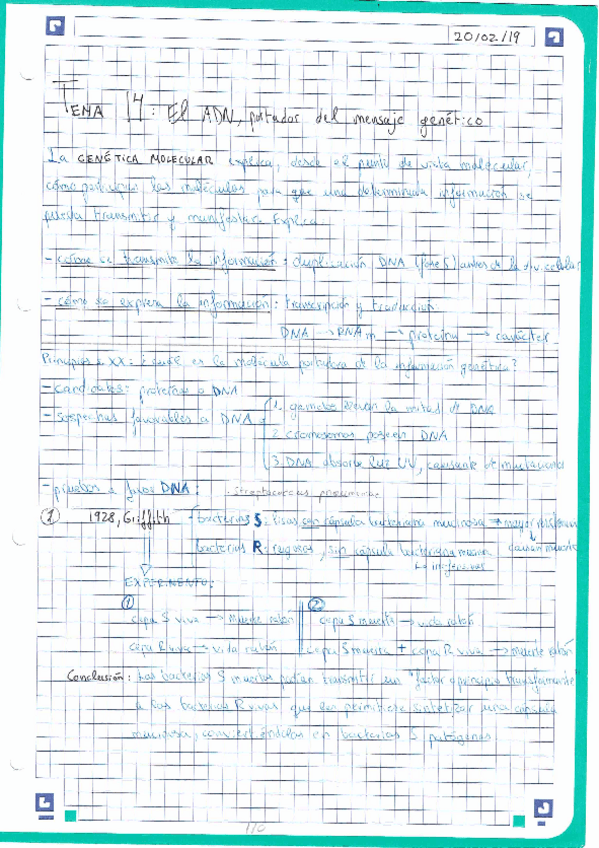 20/02/19
TEMA 14: El ADN, portador del mensaje genético
La GENÉTICA MOLECULAR explica, desde el punto de vista molecular,
cómo participan las moléculas para que una determinada información se
pueda transmitir y manifestar. Explica:
- cómo se transmite la información: duplicación DNA (fase S) antes de la div. celular
- cómo se expresa la información: transcripción y traducción
DNA → RNAm → proteína → carácter
Principios s. XX: ¿cuál es la molécula portadora de la información genética?
- candidatos: proteínas o DNA
- sospechas favorables a DNA
1. gametos llevan la mitad de DNA
2. cromosomas poseen DNA
3. DNA absorbe luz UV, causante de mutaciones
- pruebas a favor DNA: Streptococcus pneumoniae
① 1928, Griffith
bacterias S: lisas con cápsula bacteriana mucinosa → mayor
causan muerte
bacterias R: rugosas, sin cápsula bacteriana mucosa
↳ inofensivas
EXPERIMENTO:
① ②
cepa S viva → muerte ratón cepa S muerta → vida ratón
cepa R viva → vida ratón cepa S muerta + cepa R viva → muerte ratón
Conclusión: Las bacterias S muertas podían transmitir un "factor o principio transformante"
a las bacterias R vivas que les permitiese sintetizar una cápsula
mucinosa, convirtiéndolas en bacterias S patógenas.